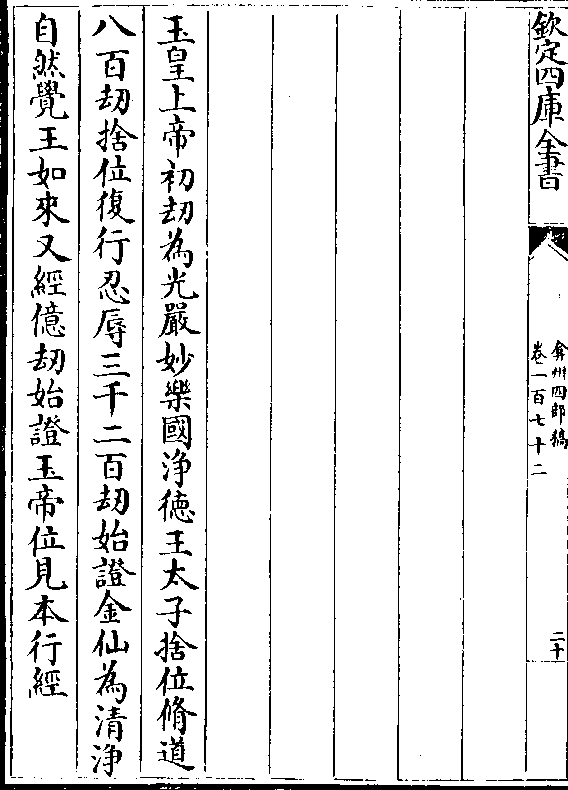 欽定四庫全書
弇州四部稿
卷一百七十二
二十
玉皇上帝初刼為光嚴妙樂國淨徳王太子捨位脩道
八百刼捨位復行忍辱三千二百刼始證金仙為清淨
自然覺王如來又經億刼始證玉帝位見本行經